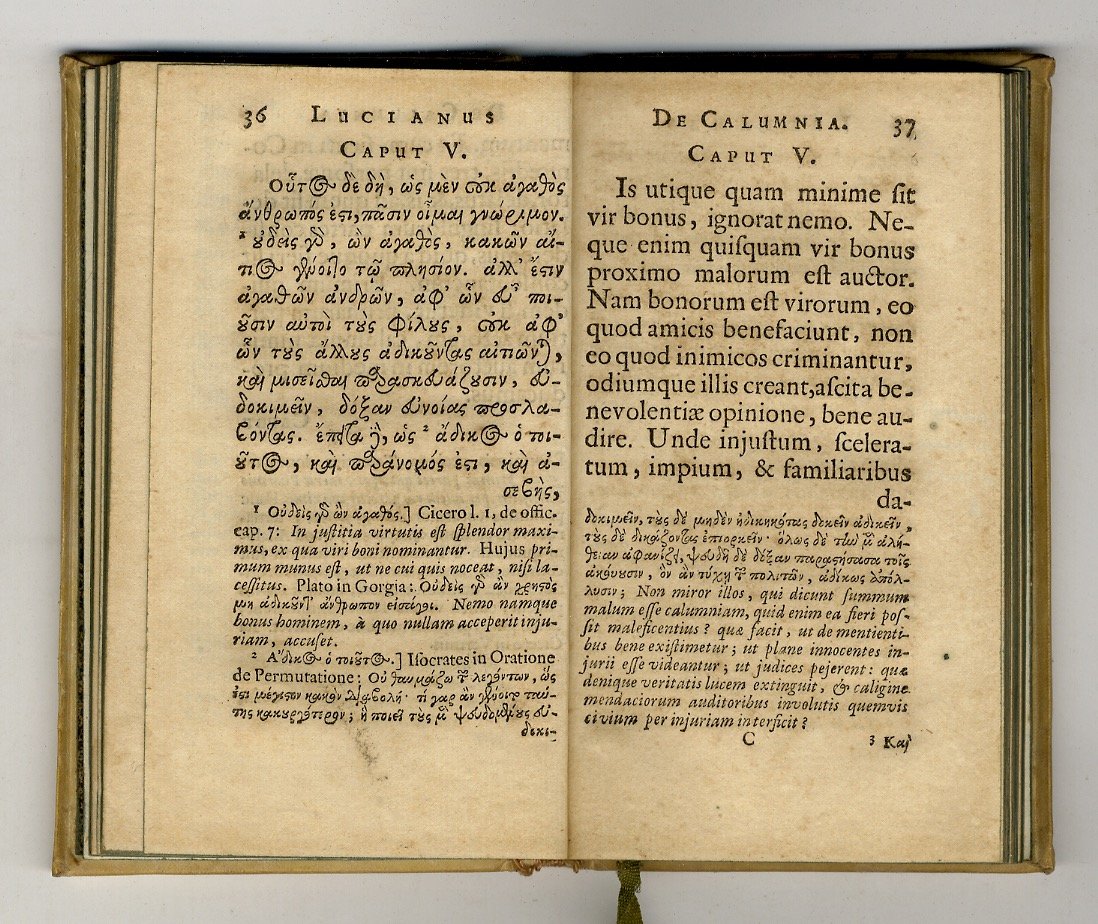 36 LUCIANUS
CAPUT V.
Οὗτος δὲ δὴ, ὡς μὲν οὐκ ἀγαθὸς
ἄνθρωπός ἐστι, πᾶσιν οἶμαι γνώριμον.
¹ οὐδεὶς γὰρ, ὢν ἀγαθὸς, κακῶν αἴ-
τιος γένοιτο τῷ πλησίον. ἀλλ' ἔστιν
ἀγαθῶν ἀνδρῶν, ἀφ' ὧν εὖ ποι-
οῦσιν αὐτοὶ τοὺς φίλους, οὐκ ἀφ'
ὧν τοὺς ἄλλους ἀδικοῦντας αἰτιῶνται,
καὶ μισεῖσθαι παρασκευάζουσιν, εὐ-
δοκιμεῖν, δόξαν εὐνοίας προσλα-
βόντας. ἔπειτα δὲ, ὡς ² ἄδικος ὁ τοι-
οῦτος, καὶ παράνομός ἐστι, καὶ ἀ-
σεβὴς,
1 Οὐδεὶς γὰρ ὢν ἀγαθός.] Cicero l. 1, de offic.
cap. 7: In justitia virtutis est splendor maxi-
mus, ex qua viri boni nominantur. Hujus pri-
mum munus est, ut ne cui quis noceat, nisi la-
cessitus. Plato in Gorgia: Οὐδεὶς γὰρ ἂν χρηστὸς
μὴ ἀδικοῦντ' ἄνθρωπον εἰσάγοι. Nemo namque
bonus hominem, à quo nullam acceperit inju-
riam, accuset.
2 Ἄδικος ὁ τοιοῦτος.] Isocrates in Oratione
de Permutatione: Οὐ θαυμάζω τῶν λεγόντων, ὡς
ἔστι μέγιστον κακὸν διαβολή· τί γὰρ ἂν γένοιτο ταύ-
της κακουργότερον; ἣ ποιεῖ τοὺς μὲν ψευδομένους εὐ-
δοκι-
DE CALUMNIA. 37
CAPUT V.
Is utique quam minime sit
vir bonus, ignorat nemo. Ne-
que enim quisquam vir bonus
proximo malorum est auctor.
Nam bonorum est virorum, eo
quod amicis benefaciunt, non
eo quod inimicos criminantur,
odiumque illis creant, ascita be-
nevolentiæ opinione, bene au-
dire. Unde injustum, scelera-
tum, impium, & familiaribus
da-
δοκιμεῖν, τοὺς δὲ μηδὲν ἠδικηκότας δοκεῖν ἀδικεῖν,
τοὺς δὲ δικάζοντας ἐπιορκεῖν· ὅλως δὲ τὴν μὲν ἀλή-
θειαν ἀφανίζει, ψευδῆ δὲ δόξαν παραστήσασα τοῖς
ἀκούουσιν, ὃν ἂν τύχῃ τῶν πολιτῶν, ἀδίκως ἀπόλ-
λυσιν; Non miror illos, qui dicunt summum
malum esse calumniam, quid enim ea fieri pos-
sit maleficentius? quæ facit, ut de mentienti-
bus bene existimetur; ut plane innocentes in-
jurii esse videantur; ut judices pejerent: quæ
denique veritatis lucem extinguit, & caligine
mendaciorum auditoribus involutis quemvis
civium per injuriam interficit?
C 3 Καὶ